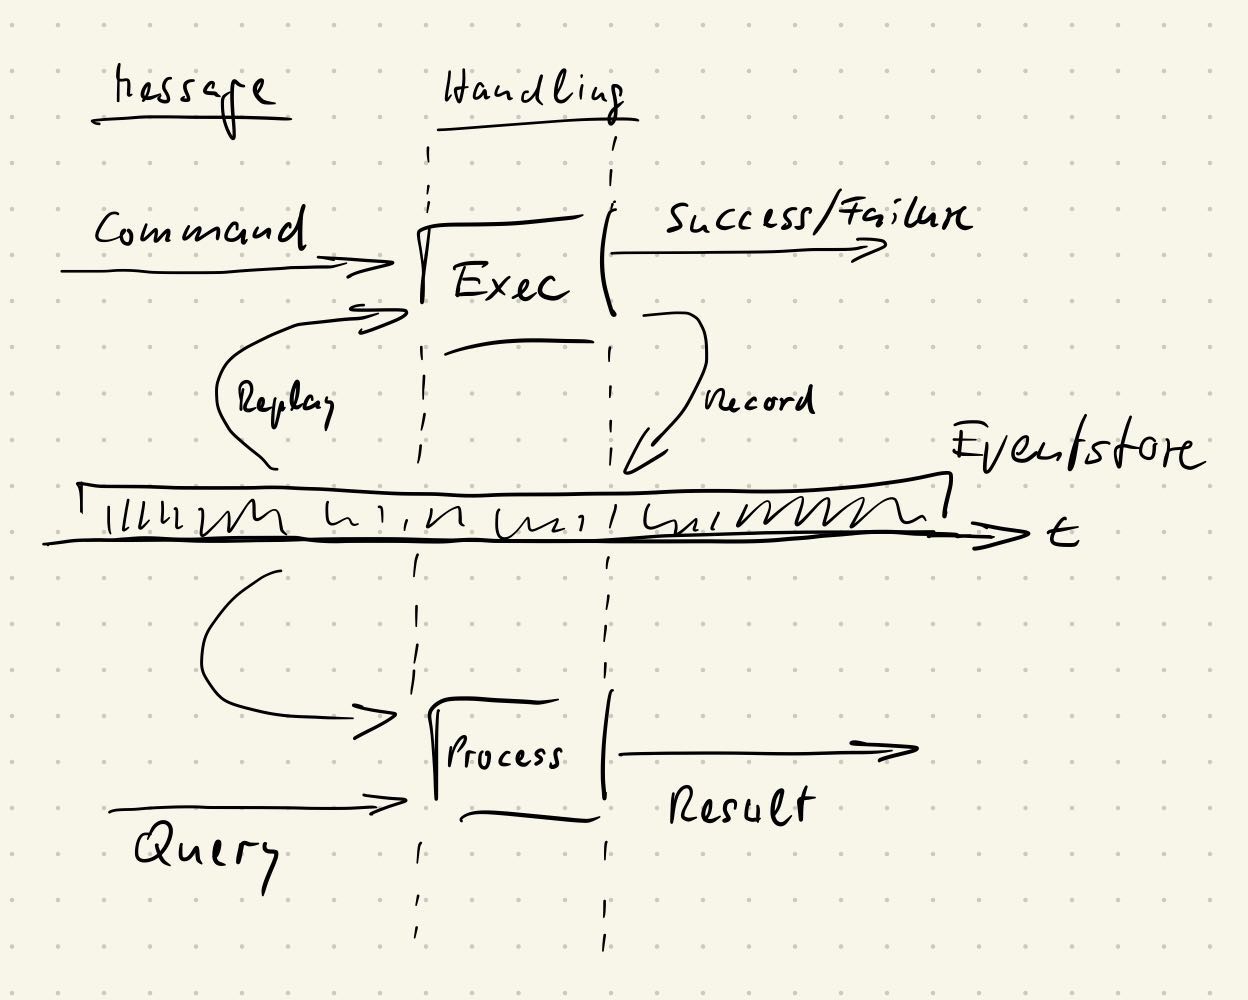 Message
Handling
Command
Success/Failure
Exec
Replay
Record
Eventstore
t
Process
Result
Query